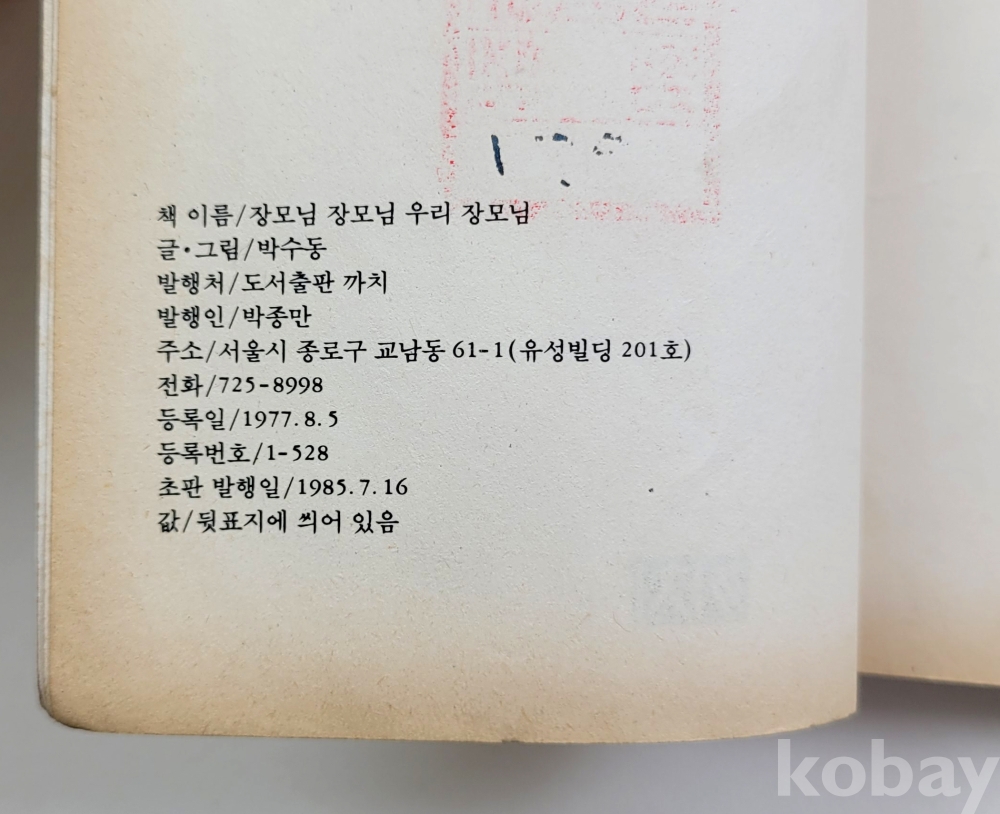 책 이름/장모님 장모님 우리 장모님
글·그림/박수동
발행처/도서출판 까치
발행인/박종만
주소/서울시 종로구 교남동 61-1(유성빌딩 201호)
전화/725-8998
등록일/1977. 8. 5
등록번호/1-528
초판 발행일/1985. 7. 16
값/뒷표지에 씌어 있음
kobay